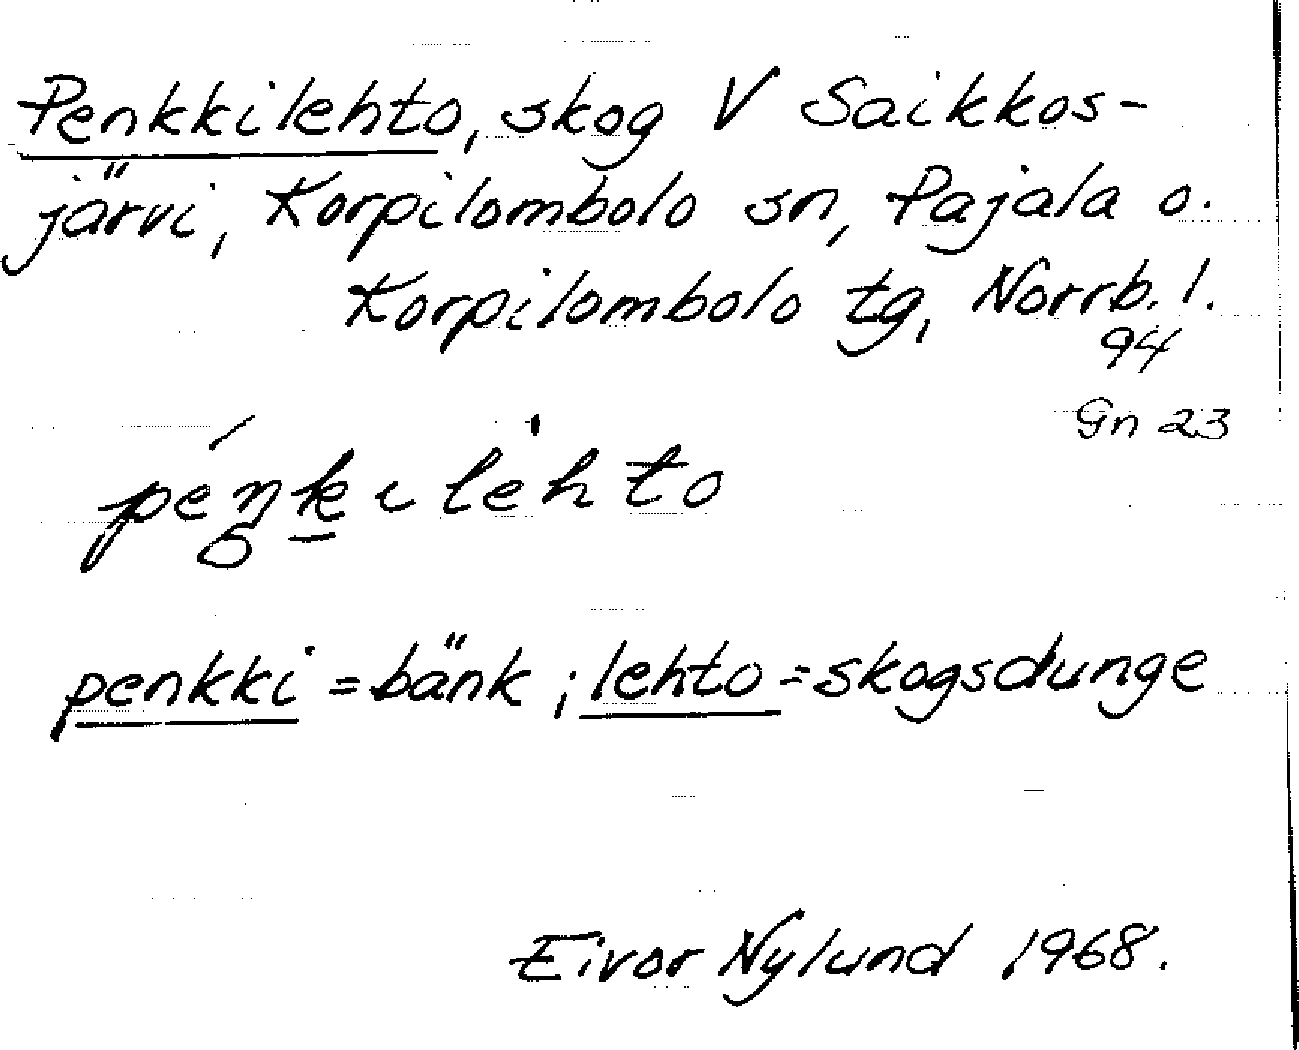 Penkkilehto, skog V Saikkos-
järvi, Korpilombolo sn, Pajala o.
Korpilombolo tg, Norrb. l.
94
Gn 23
penkkilehto
penkki = bänk ; lehto = skogsdunge
Eivor Nylund 1968.